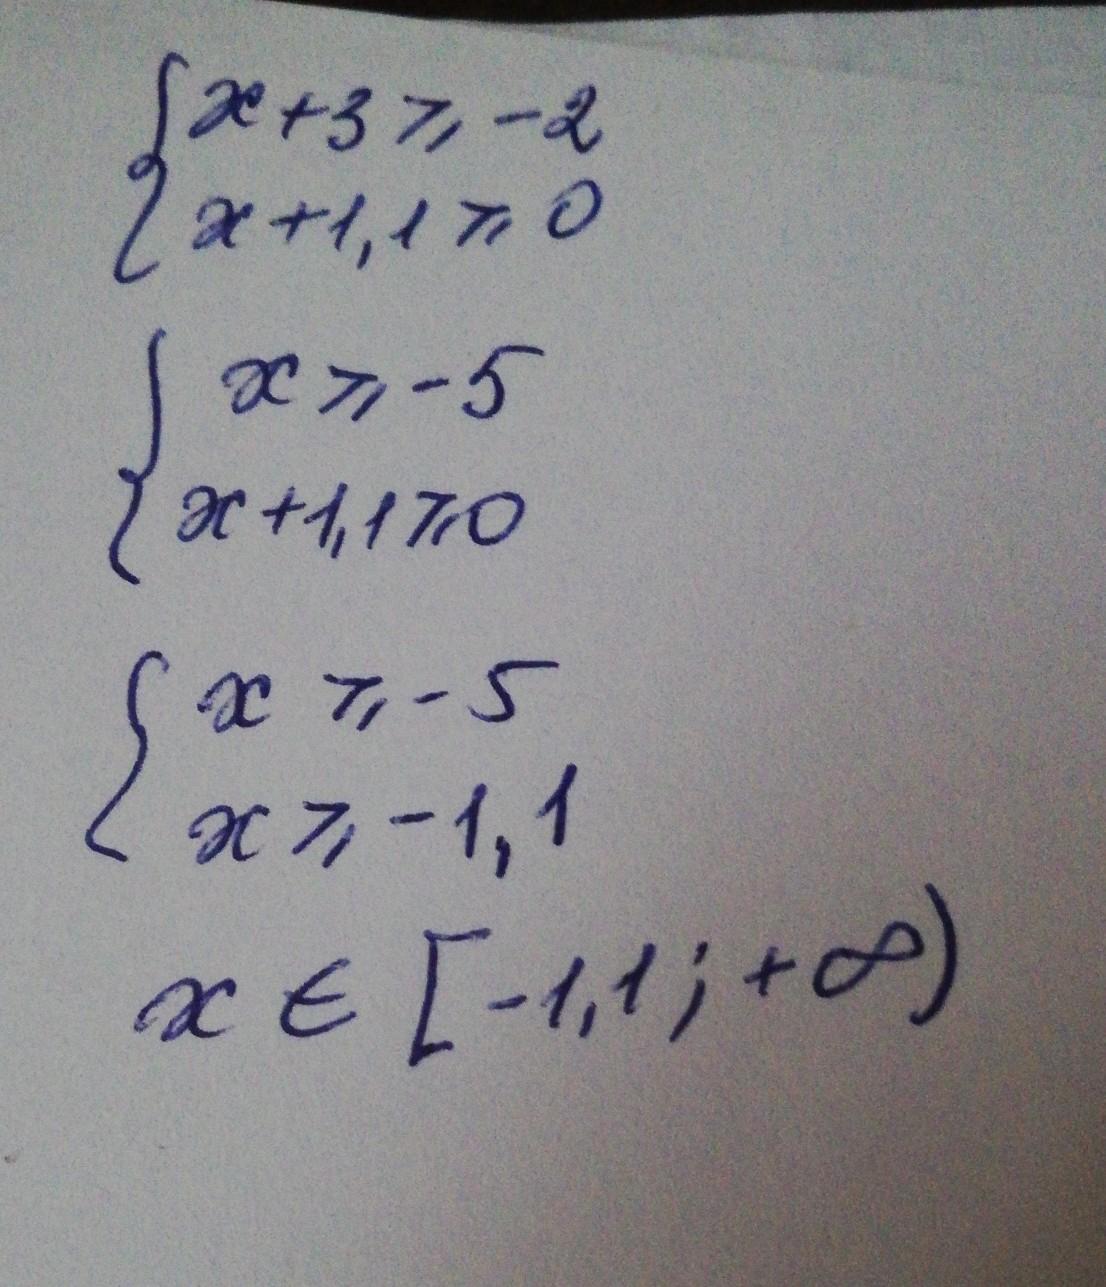 { x + 3 ⩾ -2
x + 1,1 ⩾ 0
{ x ⩾ -5
x + 1,1 ⩾ 0
{ x ⩾ -5
x ⩾ -1,1
x ∈ [-1,1; +∞)